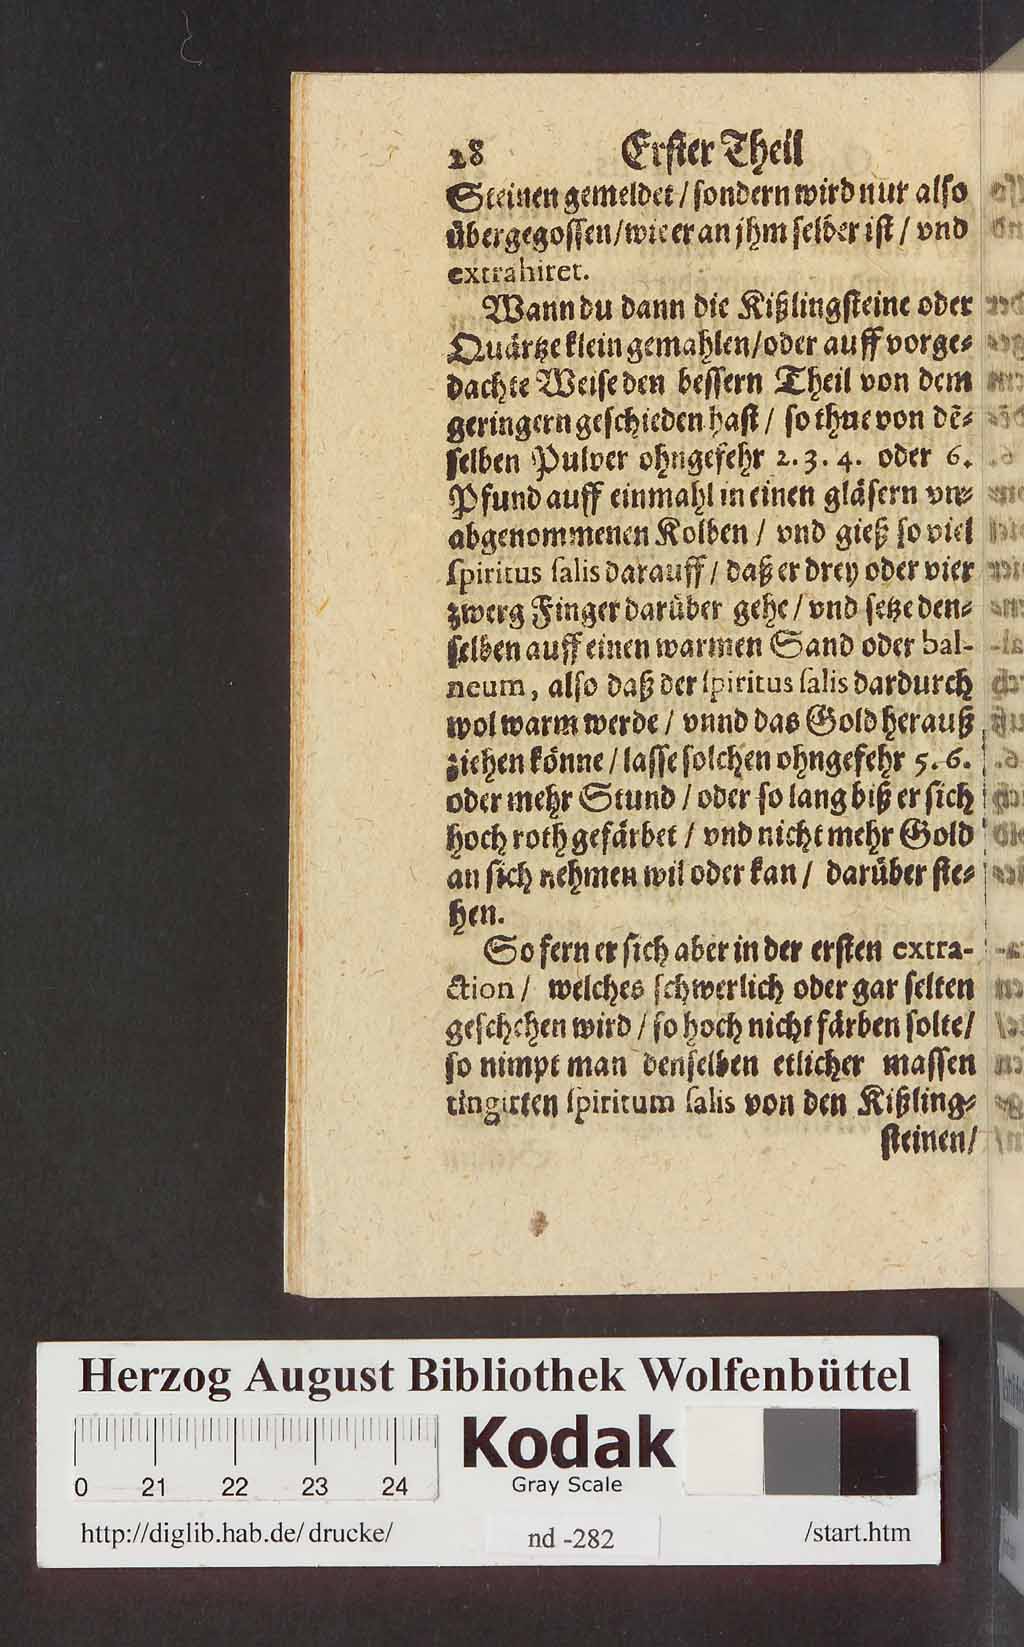 28 Erster Theil
Steinen gemeldet / sondern wird nur also
übergegossen / wie er an jhm selber ist / vnd
extrahiret.
Wann du dann die Kißlingsteine oder
Quärtze klein gemahlen / oder auff vorge⸗
dachte Weise den bessern Theil von dem
geringern geschieden hast / so thue von dẽ⸗
selben Pulver ohngefehr 2. 3. 4. oder 6.
Pfund auff einmahl in einen gläsern vn⸗
abgenommenen Kolben / vnd gieß so viel
spiritus salis darauff / daß er drey oder vier
zwerg Finger darüber gehe / vnd setze den⸗
selben auff einen warmen Sand oder bal-
neum, also daß der spiritus salis dardurch
wol warm werde / vnnd das Gold herauß
ziehen könne / lasse solchen ohngefehr 5. 6.
oder mehr Stund / oder so lang biß er sich
hoch roth gefärbet / vnd nicht mehr Gold
an sich nehmen wil oder kan / darüber ste⸗
hen.
So fern er sich aber in der ersten extra-
ction / welches schwerlich oder gar selten
geschehen wird / so hoch nicht färben solte /
so nimpt man denselben etlicher massen
tingirten spiritum salis von den Kißling⸗
steinen /
Herzog August Bibliothek Wolfenbüttel
0 21 22 23 24
Kodak
Gray Scale
http://diglib.hab.de/drucke/ nd -282 /start.htm